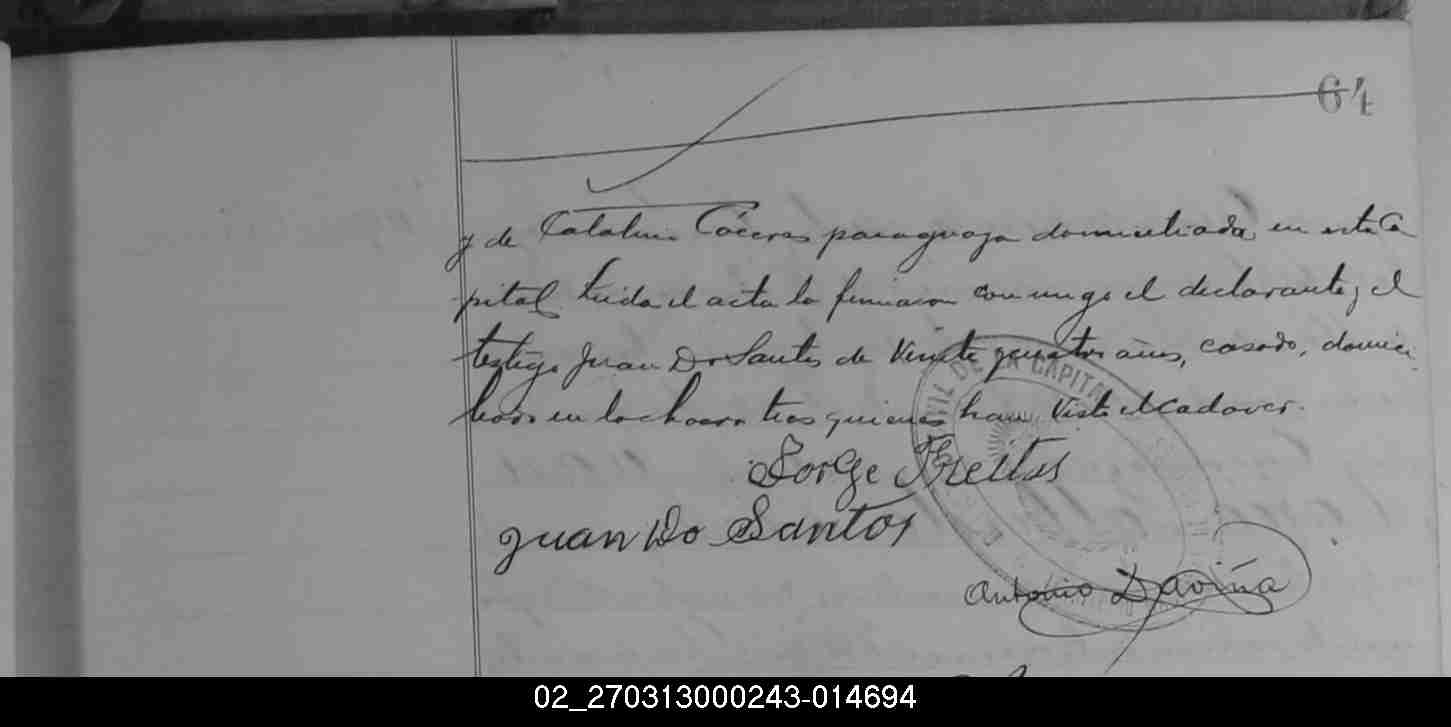 64
y de Catalina Cáceres paraguaya domiciliada en esta Ca
pital leida el acta la firmaron conmigo el declarante y el
testigo Juan Do Santos de Veinte y cuatro años, casado, domici
liado en la chacra tres quienes han Visto el cadaver.
Jorge Freitas
Juan Do Santos
Antonio Daviña
CIVIL DE LA CAPITAL
02_270313000243-014694